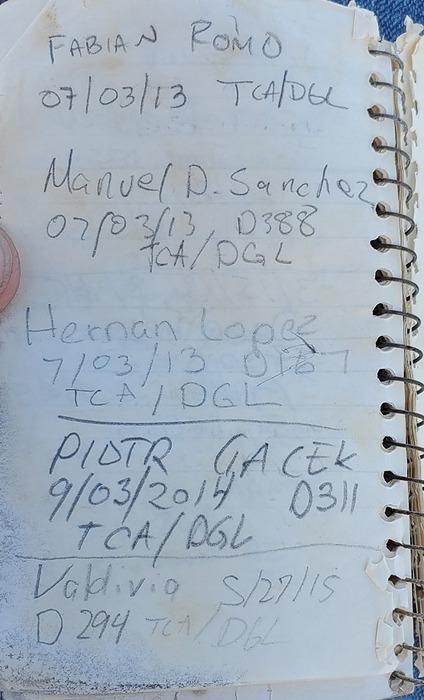 FABIAN ROMO
07/03/13 TCA/DGL
Manuel D. Sanchez
07/03/13 D388
TCA/DGL
Hernan Lopez
7/03/13
TCA/DGL
PIOTR GACEK
9/03/2014 D311
TCA/DGL
Valdivia 5/27/15
D294 TCA/DGL